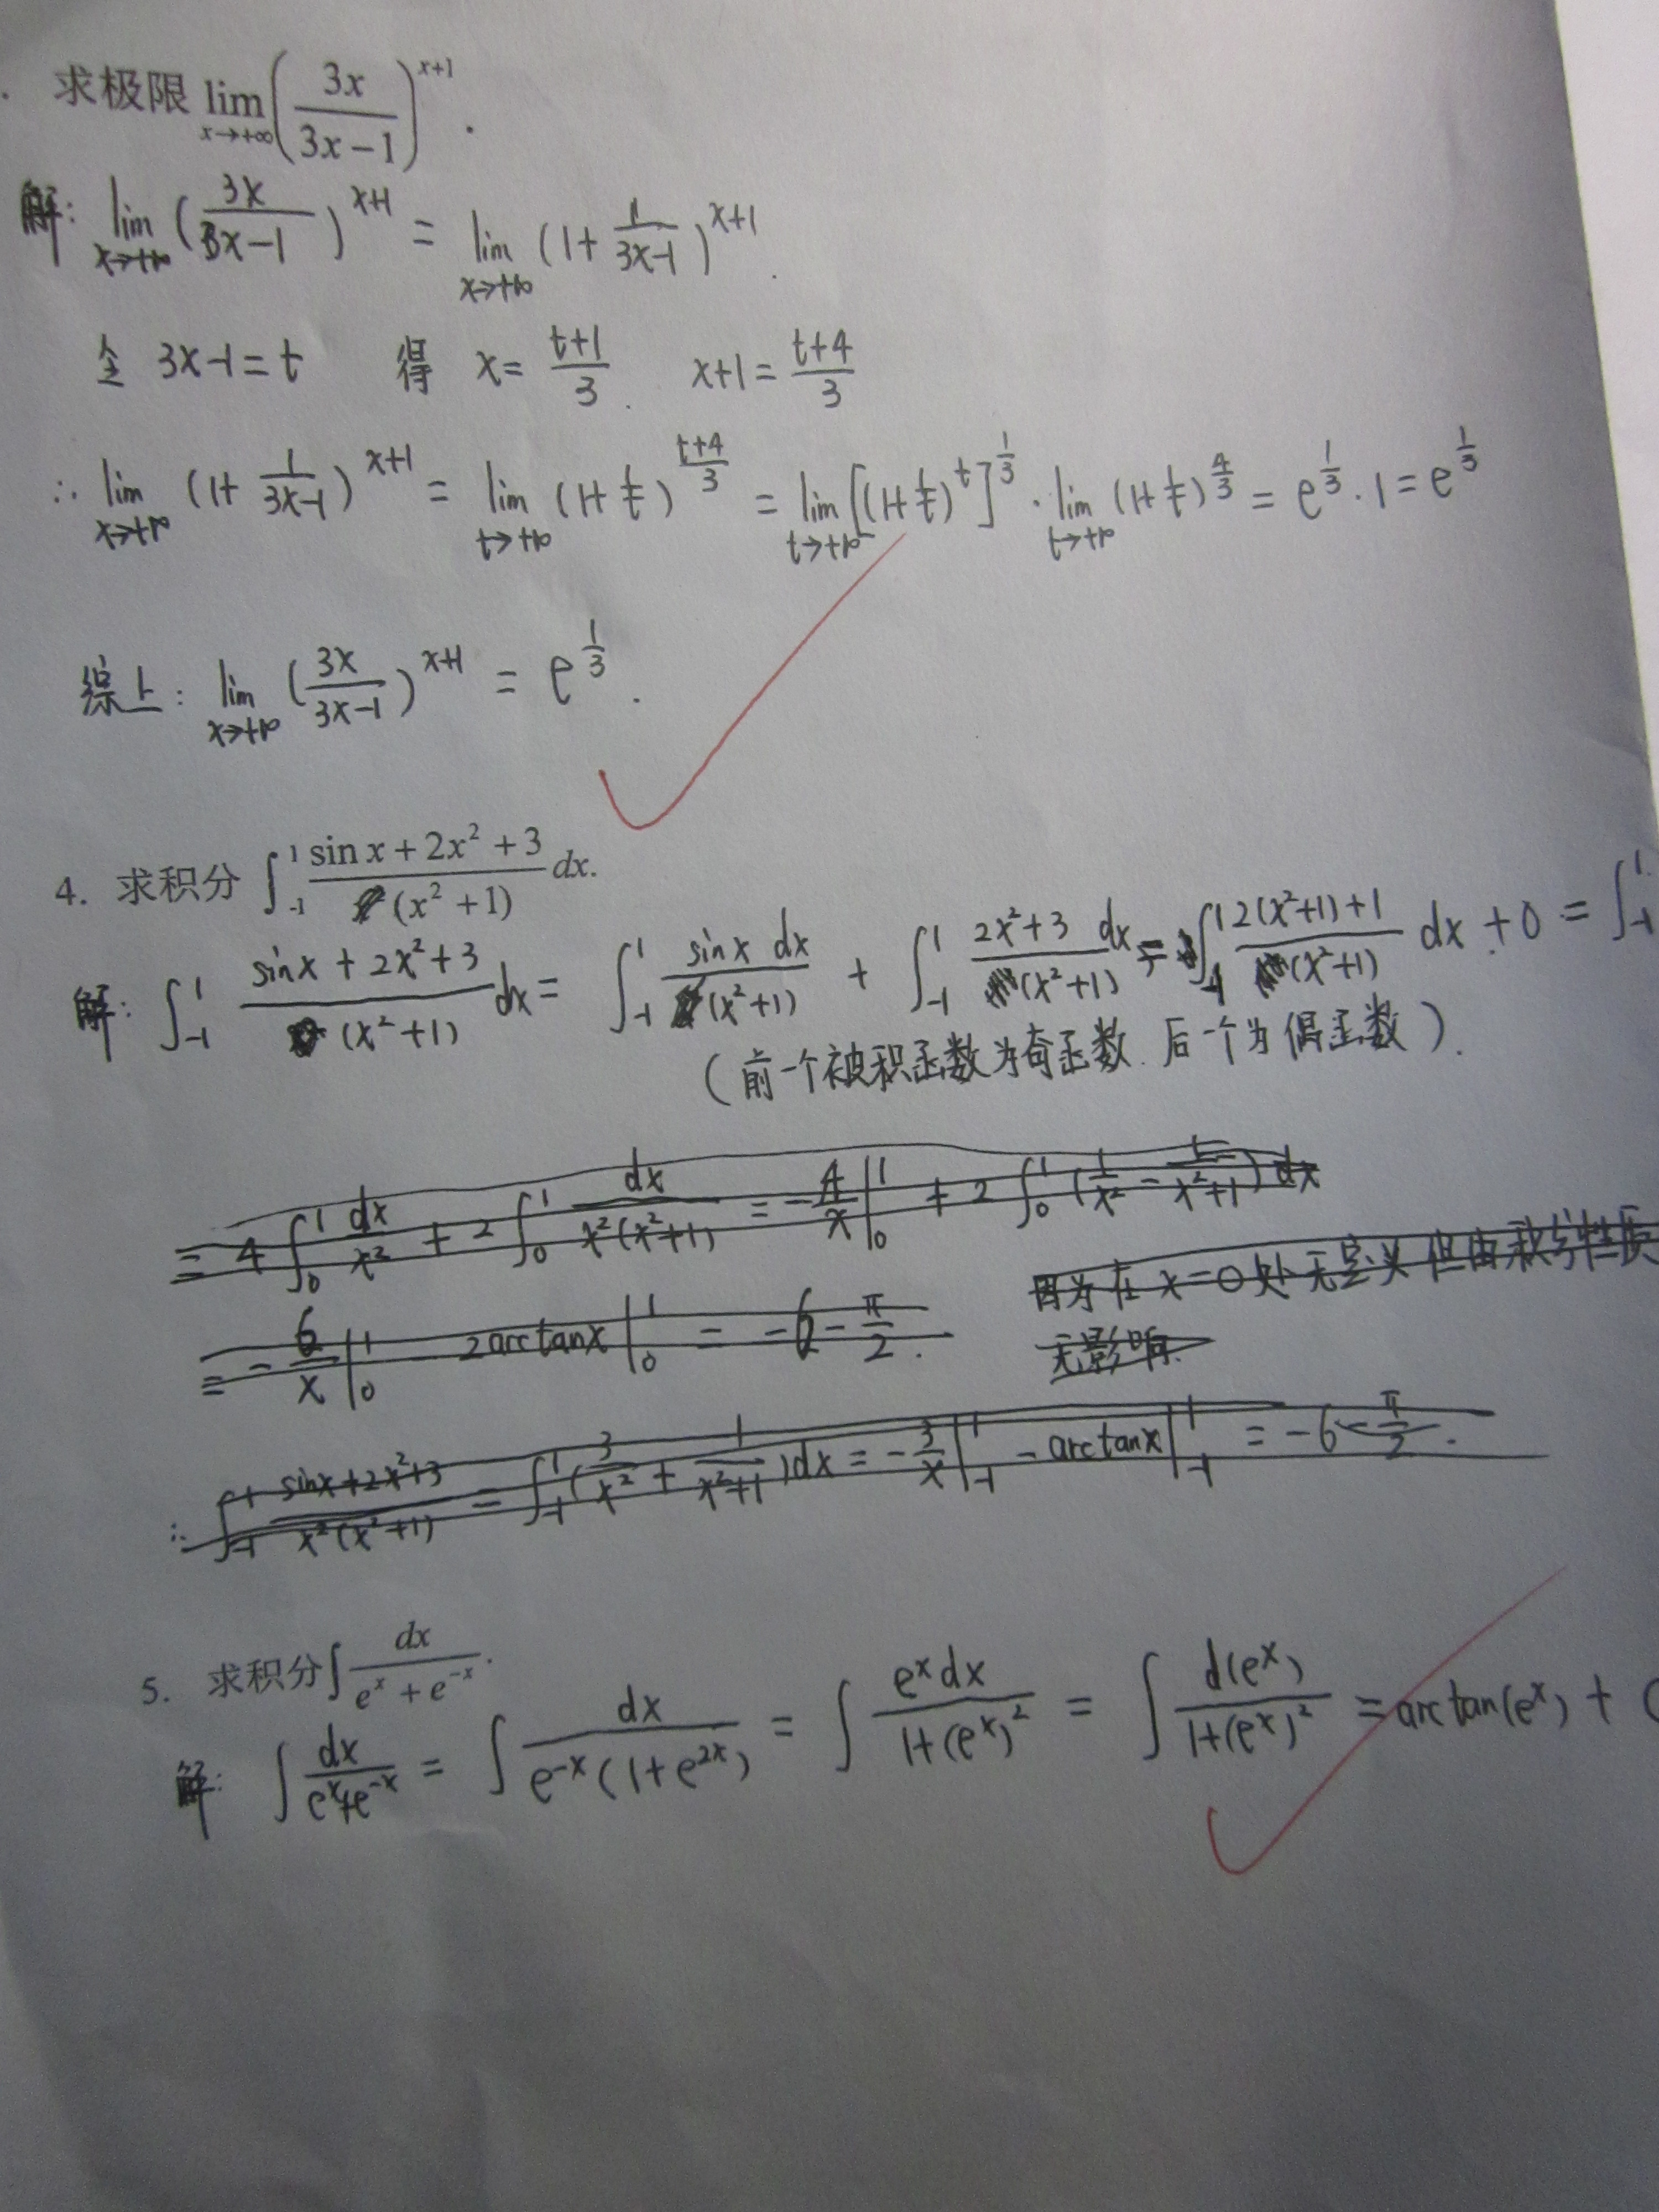 求极限 lim x→+∞ (3x/(3x−1))^(x+1) .
解: lim x→+∞ (3x/(3x−1))^(x+1) = lim x→+∞ (1+1/(3x−1))^(x+1) .
令 3x−1=t 得 x=(t+1)/3 . x+1=(t+4)/3
∴ lim x→+∞ (1+1/(3x−1))^(x+1) = lim t→+∞ (1+1/t)^((t+4)/3) = lim t→+∞ [(1+1/t)^t]^(1/3) · lim t→+∞ (1+1/t)^(4/3) = e^(1/3) · 1 = e^(1/3)
综上: lim x→+∞ (3x/(3x−1))^(x+1) = e^(1/3) .
4. 求积分 ∫_-1^1 (sin x + 2x² + 3)/(x² + 1) dx.
解: ∫_-1^1 (sinx + 2x² + 3)/(x²+1) dx = ∫_-1^1 sinx dx/(x²+1) + ∫_-1^1 (2x²+3 dx)/(x²+1) = ∫_-1^1 (2(x²+1)+1)/(x²+1) dx + 0 = ∫_-1^1
(前一个被积函数为奇函数. 后一个为偶函数).
= 4∫_0^1 dx/x² + 2∫_0^1 dx/(x²(x²+1)) = −4/x |_0^1 + 2∫_0^1 (1/x² − 1/(x²+1)) dx
因为在 x=0处无定义 但由积分性质
= −6/x |_0^1 2arctanx |_0^1 = −6 − π/2 .
无影响.
∴ ∫_-1^1 (sinx+2x²+3)/(x²(x²+1)) = ∫_-1^1 (3/x² + 1/(x²+1))dx = −3/x |_-1^1 − arctanx |_-1^1 = −6 − π/2 .
5. 求积分 ∫ dx/(e^x + e^(-x)) .
解: ∫ dx/(e^x+e^(-x)) = ∫ dx/(e^(-x)(1+e^(2x))) = ∫ e^x dx/(1+(e^x)²) = ∫ d(e^x)/(1+(e^x)²) = arctan(e^x) + C